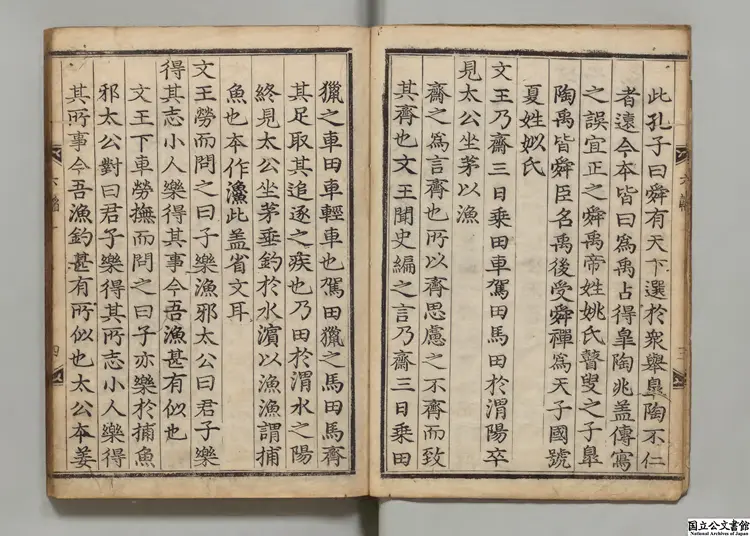 此孔子曰舜有天下選於衆舉皐陶不仁
者遠今本皆曰爲禹占得皐陶兆盖傳寫
之誤宜正之舜禹帝姓姚氏瞽叟之子皐
陶禹皆舜臣名禹後受舜禪爲天子國號
夏姓姒氏
文王乃齋三日乗田車駕田馬田於渭陽卒
見太公坐茅以漁
齋之爲言齊也所以齊思慮之不齊而致
其齊也文王聞史編之言乃齋三日乗田
獵之車田車輕車也駕田獵之馬田馬齊
其足取其追逐之疾也乃田於渭水之陽
終見太公坐茅垂釣於水濱以漁漁謂捕
魚也本作此盖省文耳
文王勞而問之曰子樂漁邪太公曰君子樂
得其志小人樂得其事今吾漁甚有似也
文王下車勞撫而問之曰子亦樂於捕魚
邪太公對曰君子樂得其所志小人樂得
其所事今吾漁釣甚有所似也太公本姜
四
国立公文書館
National Archives of Japan